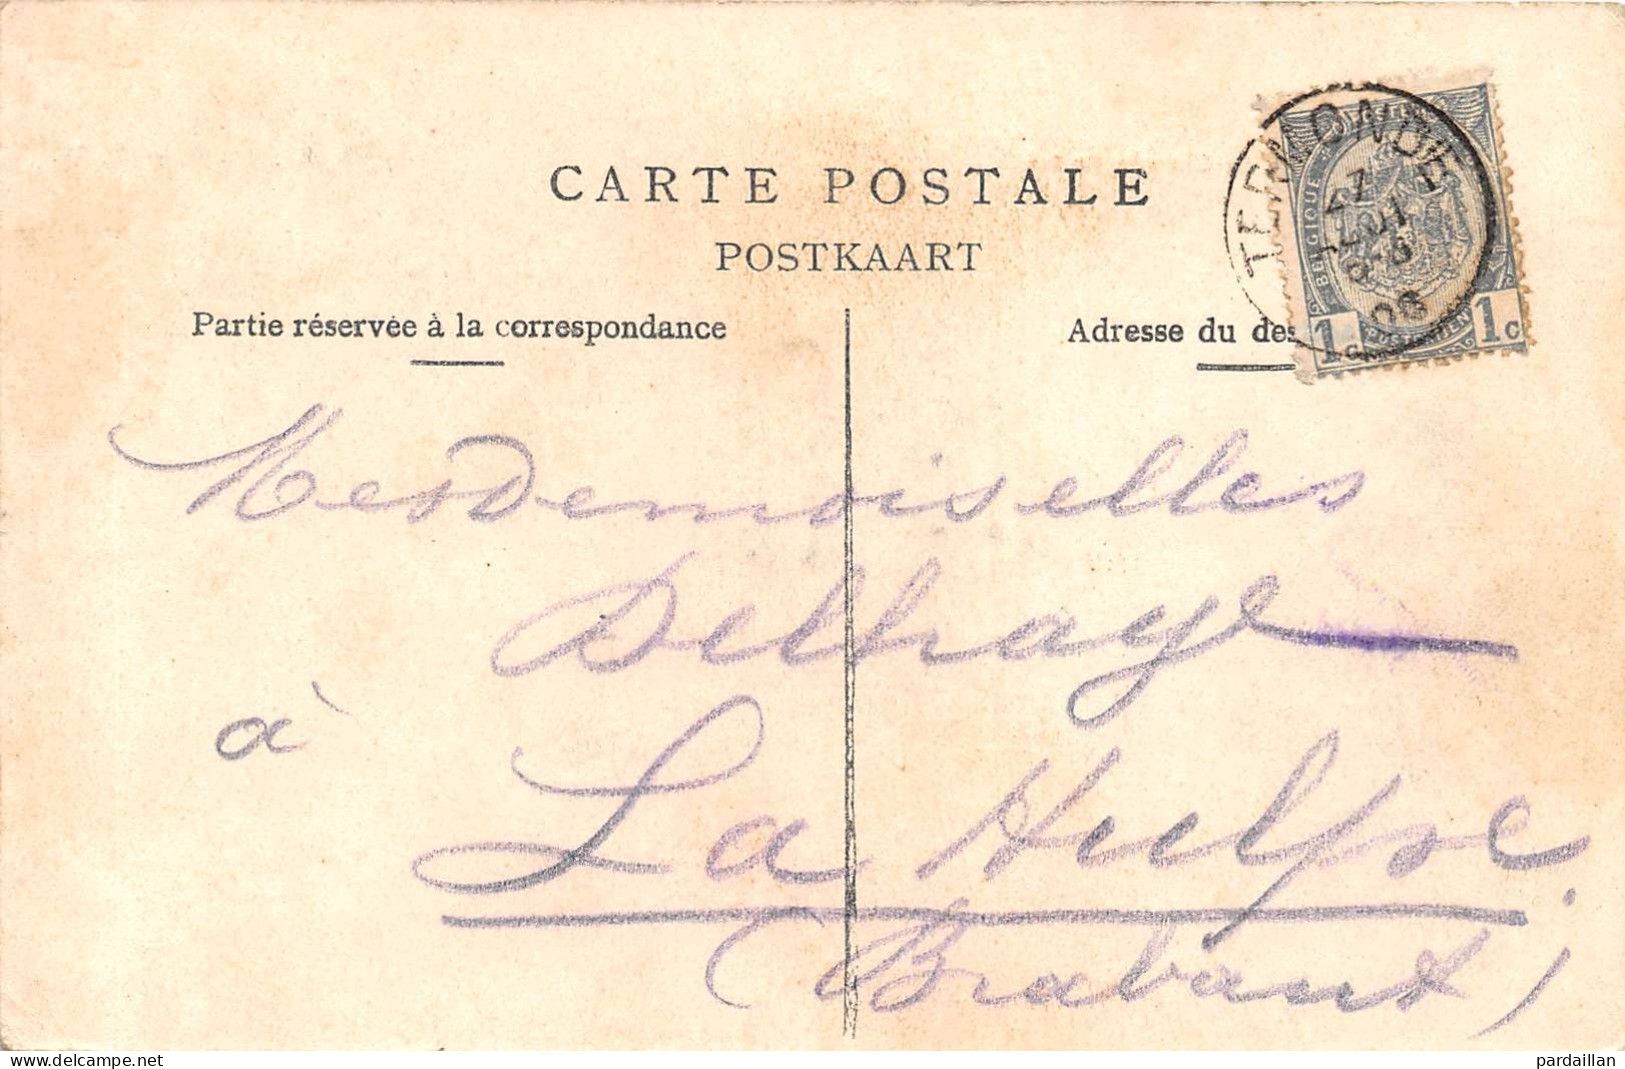 CARTE POSTALE
POSTKAART
Partie réservée à la correspondance
Adresse du des
TERMONDE
BELGIQUE
1c 1c
MesDemoiselles
Delhaye
à
La Hulpe.
(Brabant)
delcampe.net
pardaillan